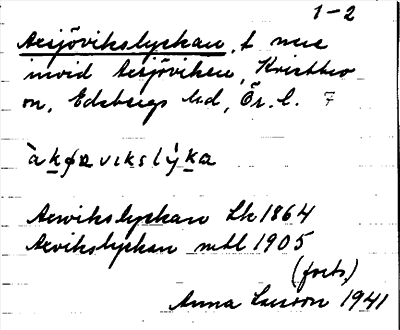 1-2
Aesjövikslyckan, t
invid Aesjöviken, Kvistbro
sn, Edsbergs hd, Ör. l. 7
àkøavikslỳka
Aevikslyckan Lk 1864
Aevikslyckan mtl 1905
(forts.)
Anna Larsson 1941